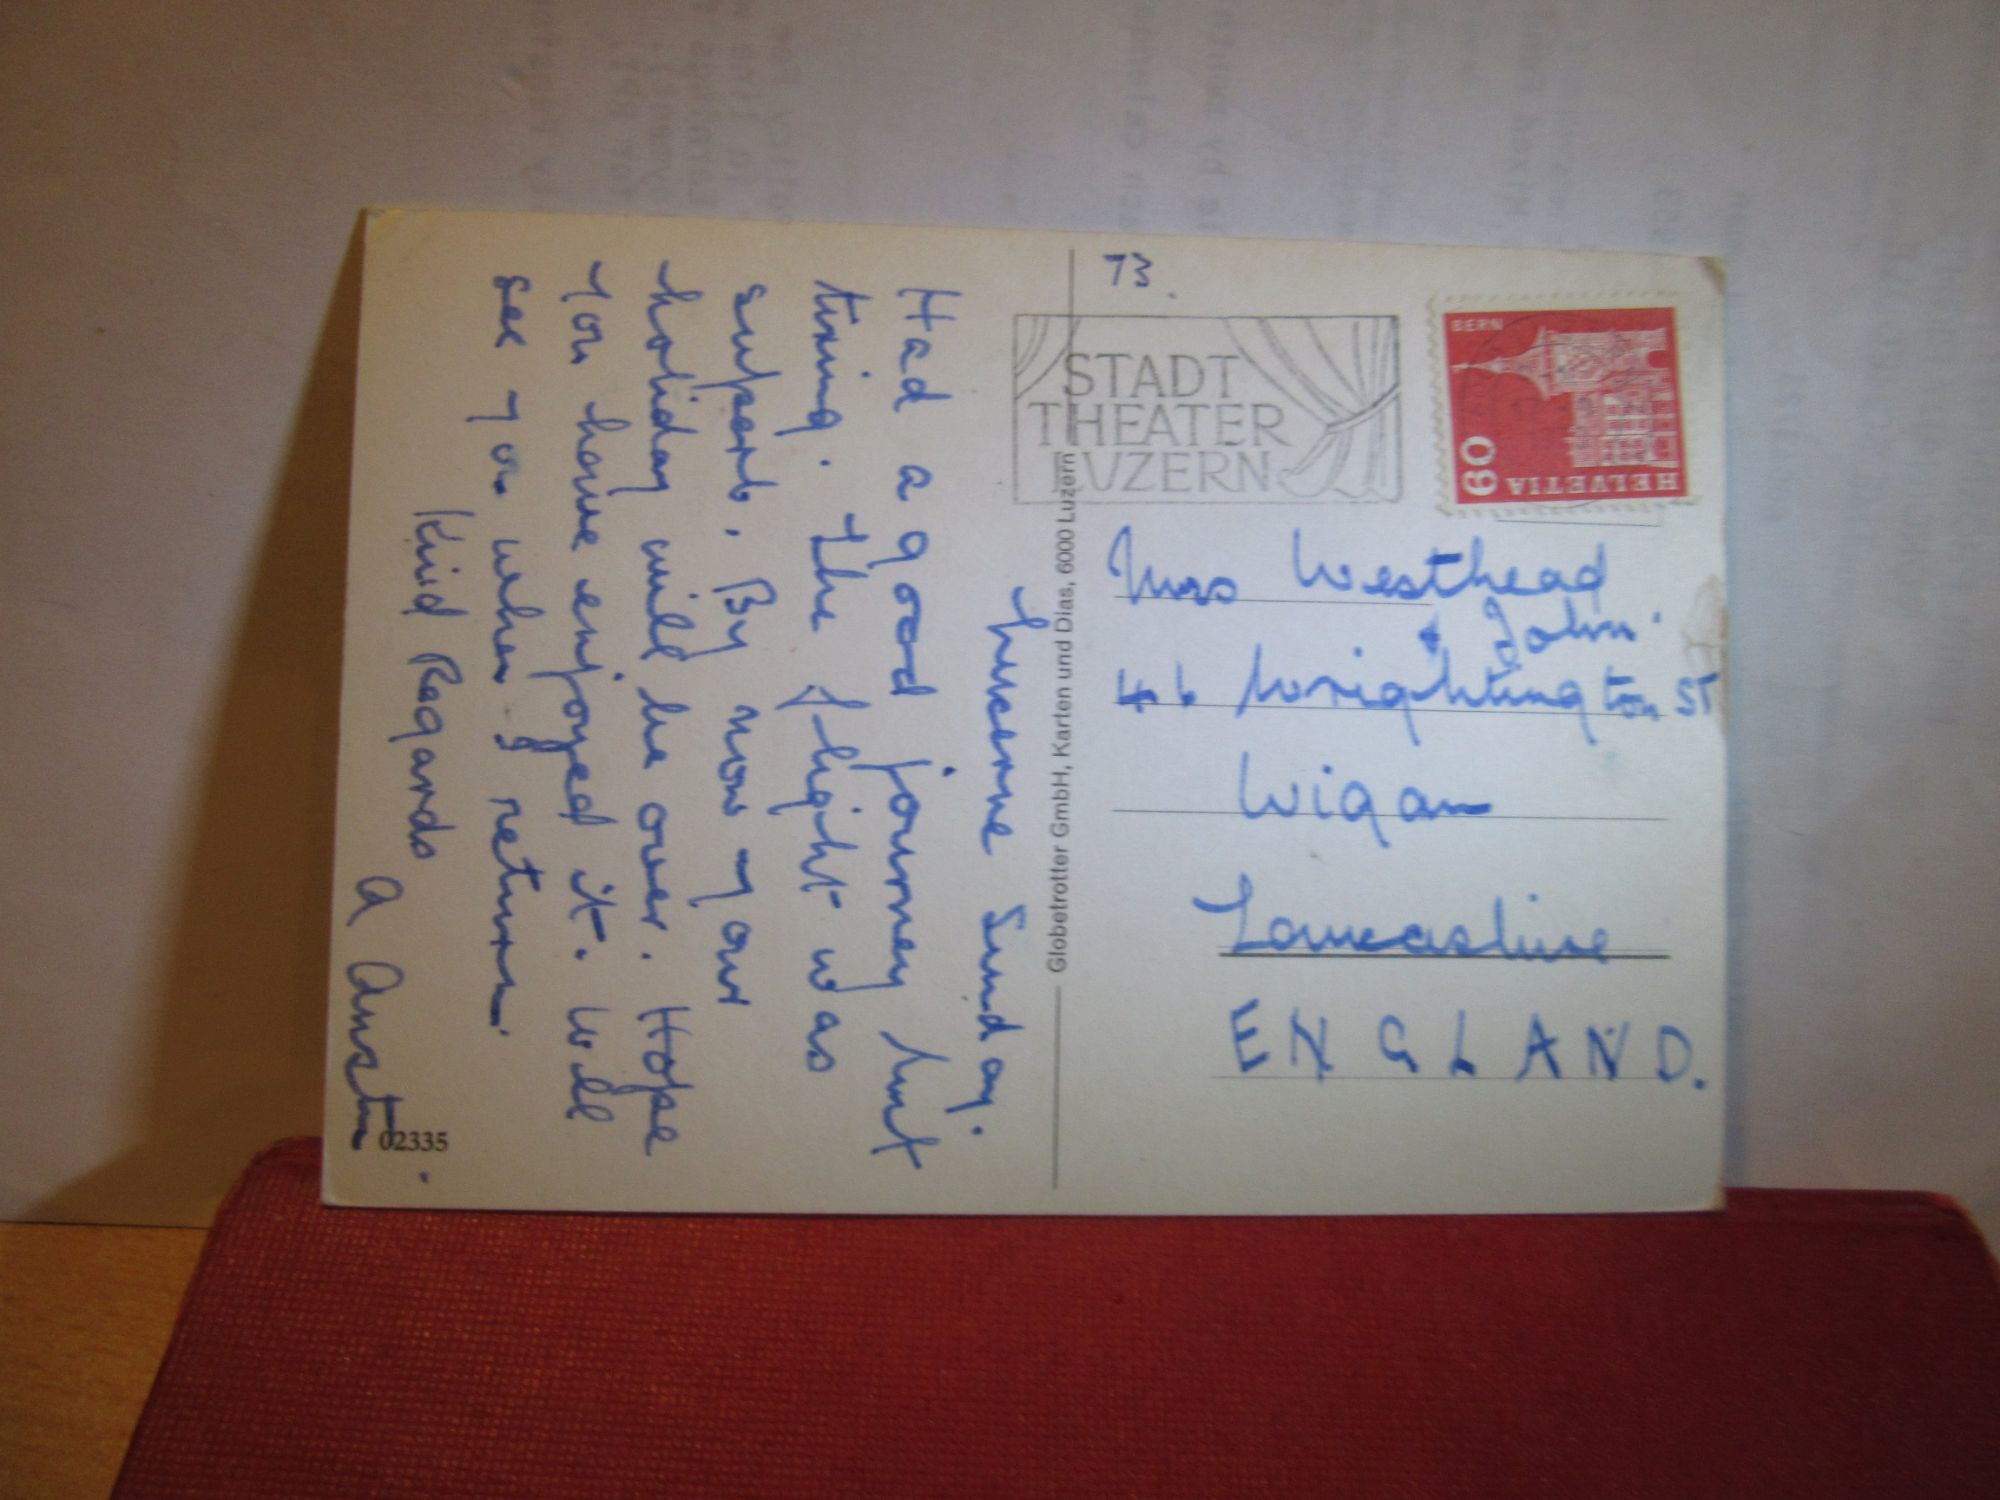 Lucerne Sunday.
Had a good journey but
tiring. The flight was
superb. By now your
holiday will be over. Hope
you have enjoyed it. Will
see you when I return.
Kind Regards
A Austin.
02335
Globetrotter GmbH, Karten und Dias, 6000 Luzern
73.
STADT
THEATER
LUZERN
BERN
60
HELVETIA
Mrs Westhead
& John.
46 Wrightington ST
Wigan
Lancashire
ENGLAND.